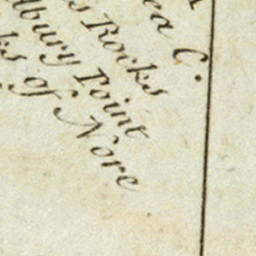 ea C.
s Rocks
lbury Point
ks of Nore